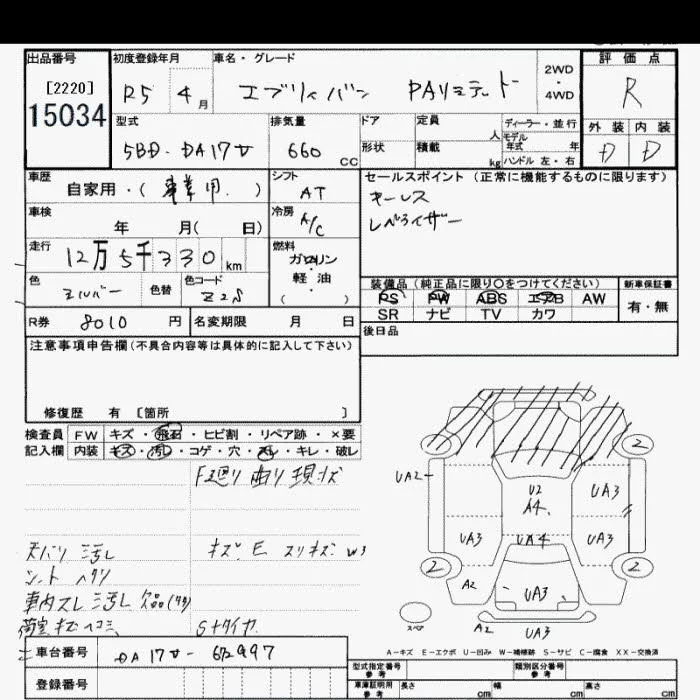 出品番号 初度登録年月 車名・グレード 2WD・4WD 評価点
[2220]
15034
R5 4月 エブリイバン PAリミテッド R
型式 排気量 ドア 定員 人 ディーラー・並行
形状 積載 kg モデル年式 年 ハンドル 左・右
外装 内装
5BD-DA17V 660 CC D D
車歴 自家用・( 事業用 ) シフト AT
セールスポイント (正常に機能するものに限ります)
キーレス
レベライザー
車検 年 月( 日) 冷房 A/C
走行 12万5千330km
燃料 ガソリン・軽油・( )
色 シルバー 色替 色コード Z2S
装備品(純正品に限り○をつけてください) 新車保証書
PS PW ABS エアB AW 有・無
SR ナビ TV カワ
R券 8010 円 名変期限 月 日
後日品
注意事項申告欄(不具合内容等は具体的に記入して下さい)
修復歴 有 [箇所 ]
検査員 FW キズ・飛石・ヒビ割・リペア跡・×要
記入欄 内装 キズ・汚れ・コゲ・穴・スレ・キレ・破レ
F廻り曲り現状
天バリ汚レ キズ E スリキズ W3
シート ヘタリ
車内スレ汚レ欠品(タタ)
荷室キズヘコミ Sタイヤ
2 2
UA2 U2 UA3
A4
UA3 UA4 UA3
2 2
A2 UA3
スペア A2 UA3
A-キズ E-エクボ U-凹み W-補修跡 S-サビ C-腐食 XX-交換済
車台番号 DA17V-672997
登録番号
型式指定番号 参考 類別区分番号 参考
車庫証明用 参考 長さ cm 幅 cm 高さ cm